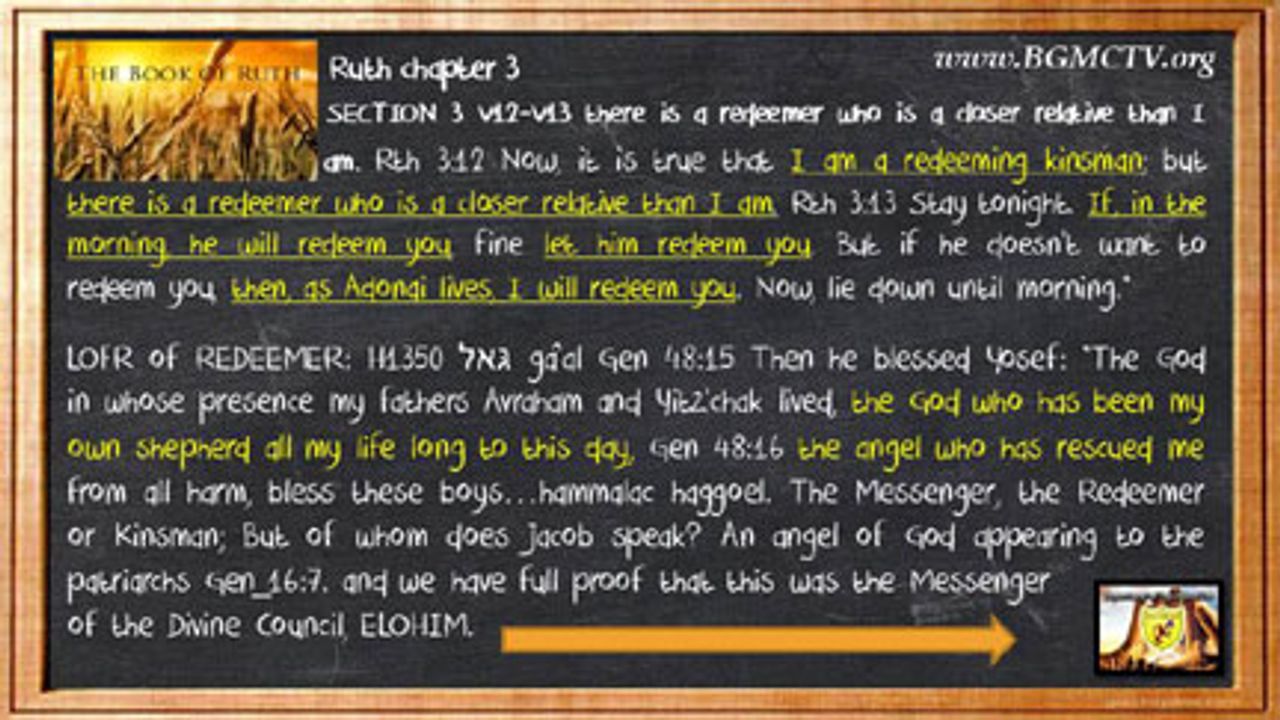 THE BOOK OF RUTH
www.BGMCTV.org
Ruth chapter 3
SECTION 3 v12-v13 there is a redeemer who is a closer relative than I
am. Rth 3:12 Now, it is true that I am a redeeming kinsman; but
there is a redeemer who is a closer relative than I am. Rth 3:13 Stay tonight. If, in the
morning, he will redeem you, fine let him redeem you. But if he doesn't want to
redeem you, then, as Adonai lives, I will redeem you. Now, lie down until morning."
LOFR of REDEEMER: H1350 גאל gâ'al Gen 48:15 Then he blessed Yosef: "The God
in whose presence my fathers Avraham and Yitz'chak lived, the God who has been my
own shepherd all my life long to this day, Gen 48:16 the angel who has rescued me
from all harm, bless these boys...hammalac haggoel. The Messenger, the Redeemer
or Kinsman; But of whom does Jacob speak? An angel of God appearing to the
patriarchs Gen_16:7. and we have full proof that this was the Messenger
of the Divine Council, ELOHIM.